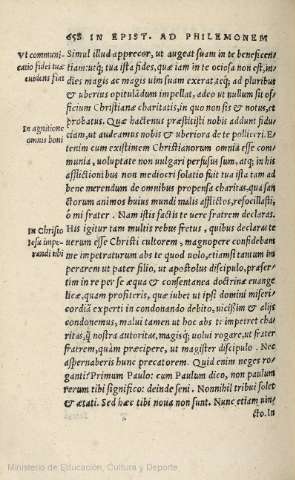 658 IN EPIST. AD PHILEMONEM
Vt communi-
catio fidei tuæ
euidens fiat
In agnitione
omnis boni
In Christo
Iesu impe-
randi tibi
Simul illud apprecor, ut augeat suam in te beneficen
tiam: utq; tua ista fides, quæ iam in te ociosa non est, in
dies magis ac magis uim suam exerat, atq; ad pluribus
& uberius opitulandum impellat, adeo ut nullum sit of
ficium Christianæ charitatis, in quo non sis & notus, et
probatus. Quæ hactenus præstitisti nobis addunt fidu-
ciam, ut audeamus nobis & uberiora de te polliceri. Et
tenim cum existimem Christianorum omnia esse com
munia, uoluptate non uulgari perfusus sum, atq; in his
afflictionibus non mediocri solatio fuit tua ista tam ad
bene merendum de omnibus propensa charitas. qua san
ctorum animos huius mundi malis afflictos, refocillasti,
ô mi frater. Nam istis factis te uere fratrem declaras.
His igitur tam multis rebus fretus, quibus declaras te
uerum esse Christi cultorem, magnopere confidebam
me impetraturum abs te quod uolo, etiamsi tanum im
perarem ut pater filio, ut apostolus discipulo, præser-
tim in re per se æqua & consentanea doctrinæ euange
licæ, quam profiteris, quæ iubet ut ipsi domini miseri-
cordiã experti in condonando debito, uicißim & alijs
condonemus, malui tamen ut hoc abs te impetret cha-
ritas, q̃ nostra autoritas, magisq; uolui rogare, ut frater
fratrem, quàm præcipere, ut magister discipulo. Nec
aspernaberis hunc precatorem. Quid enim neges ro-
ganti? Primum Paulo: cum Paulum dico, non paulum
rerum tibi significo: deinde seni. Nonnihil tribui solet
& ætati. Sed hæc tibi noua non sunt. Nunc etiam uin
cto. In
Ministerio de Educación, Cultura y Deporte